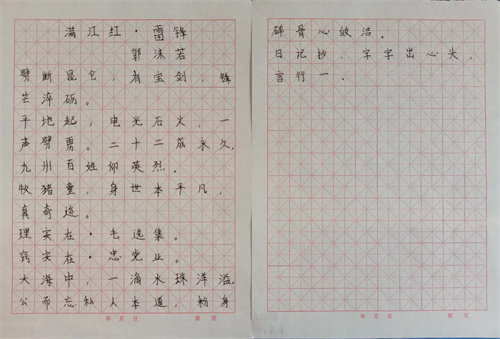 满江红·雷锋
郭沫若
劈断昆仑，有宝剑，锋
芒淬砺。
平地起，电光石火，一
声劈雳。二十二成永久，
九州百姓仰英烈。
牧猪童，身世本平凡，
真奇迹。
理实在·毛选集。
窍实在·忠党业。
大海中，一滴水珠洋溢。
公而忘私人本道，粉身
年 月 日 第 页
碎骨心皎洁。
日记抄，字字出心头，
言行一、
年 月 日 第 页